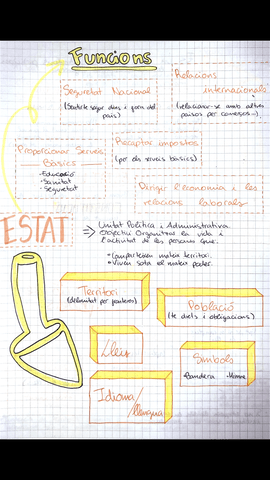 Funcions
Seguretat Nacional
(Sentir-te segur dins i fora del
país)
Relacions
internacionals
(relacionar-se amb altres
països per conveni...)
Proporcionar Serveis
Bàsics
-Educació
-Sanitat
-Seguretat
Recaptar impostos
(per als serveis bàsics)
Dirigir l'economia i les
relacions laborals
ESTAT
Unitat Política i Administrativa.
Objectiu Organitzar la vida i
l'activitat de les persones que:
• Comparteixen mateix territori.
• Viuen sota el mateix poder.
Territori
(delimitat per fronteres)
Població
(te drets i obligacions)
Lleis
Símbols
-Bandera -Himne
Idioma/
llengua